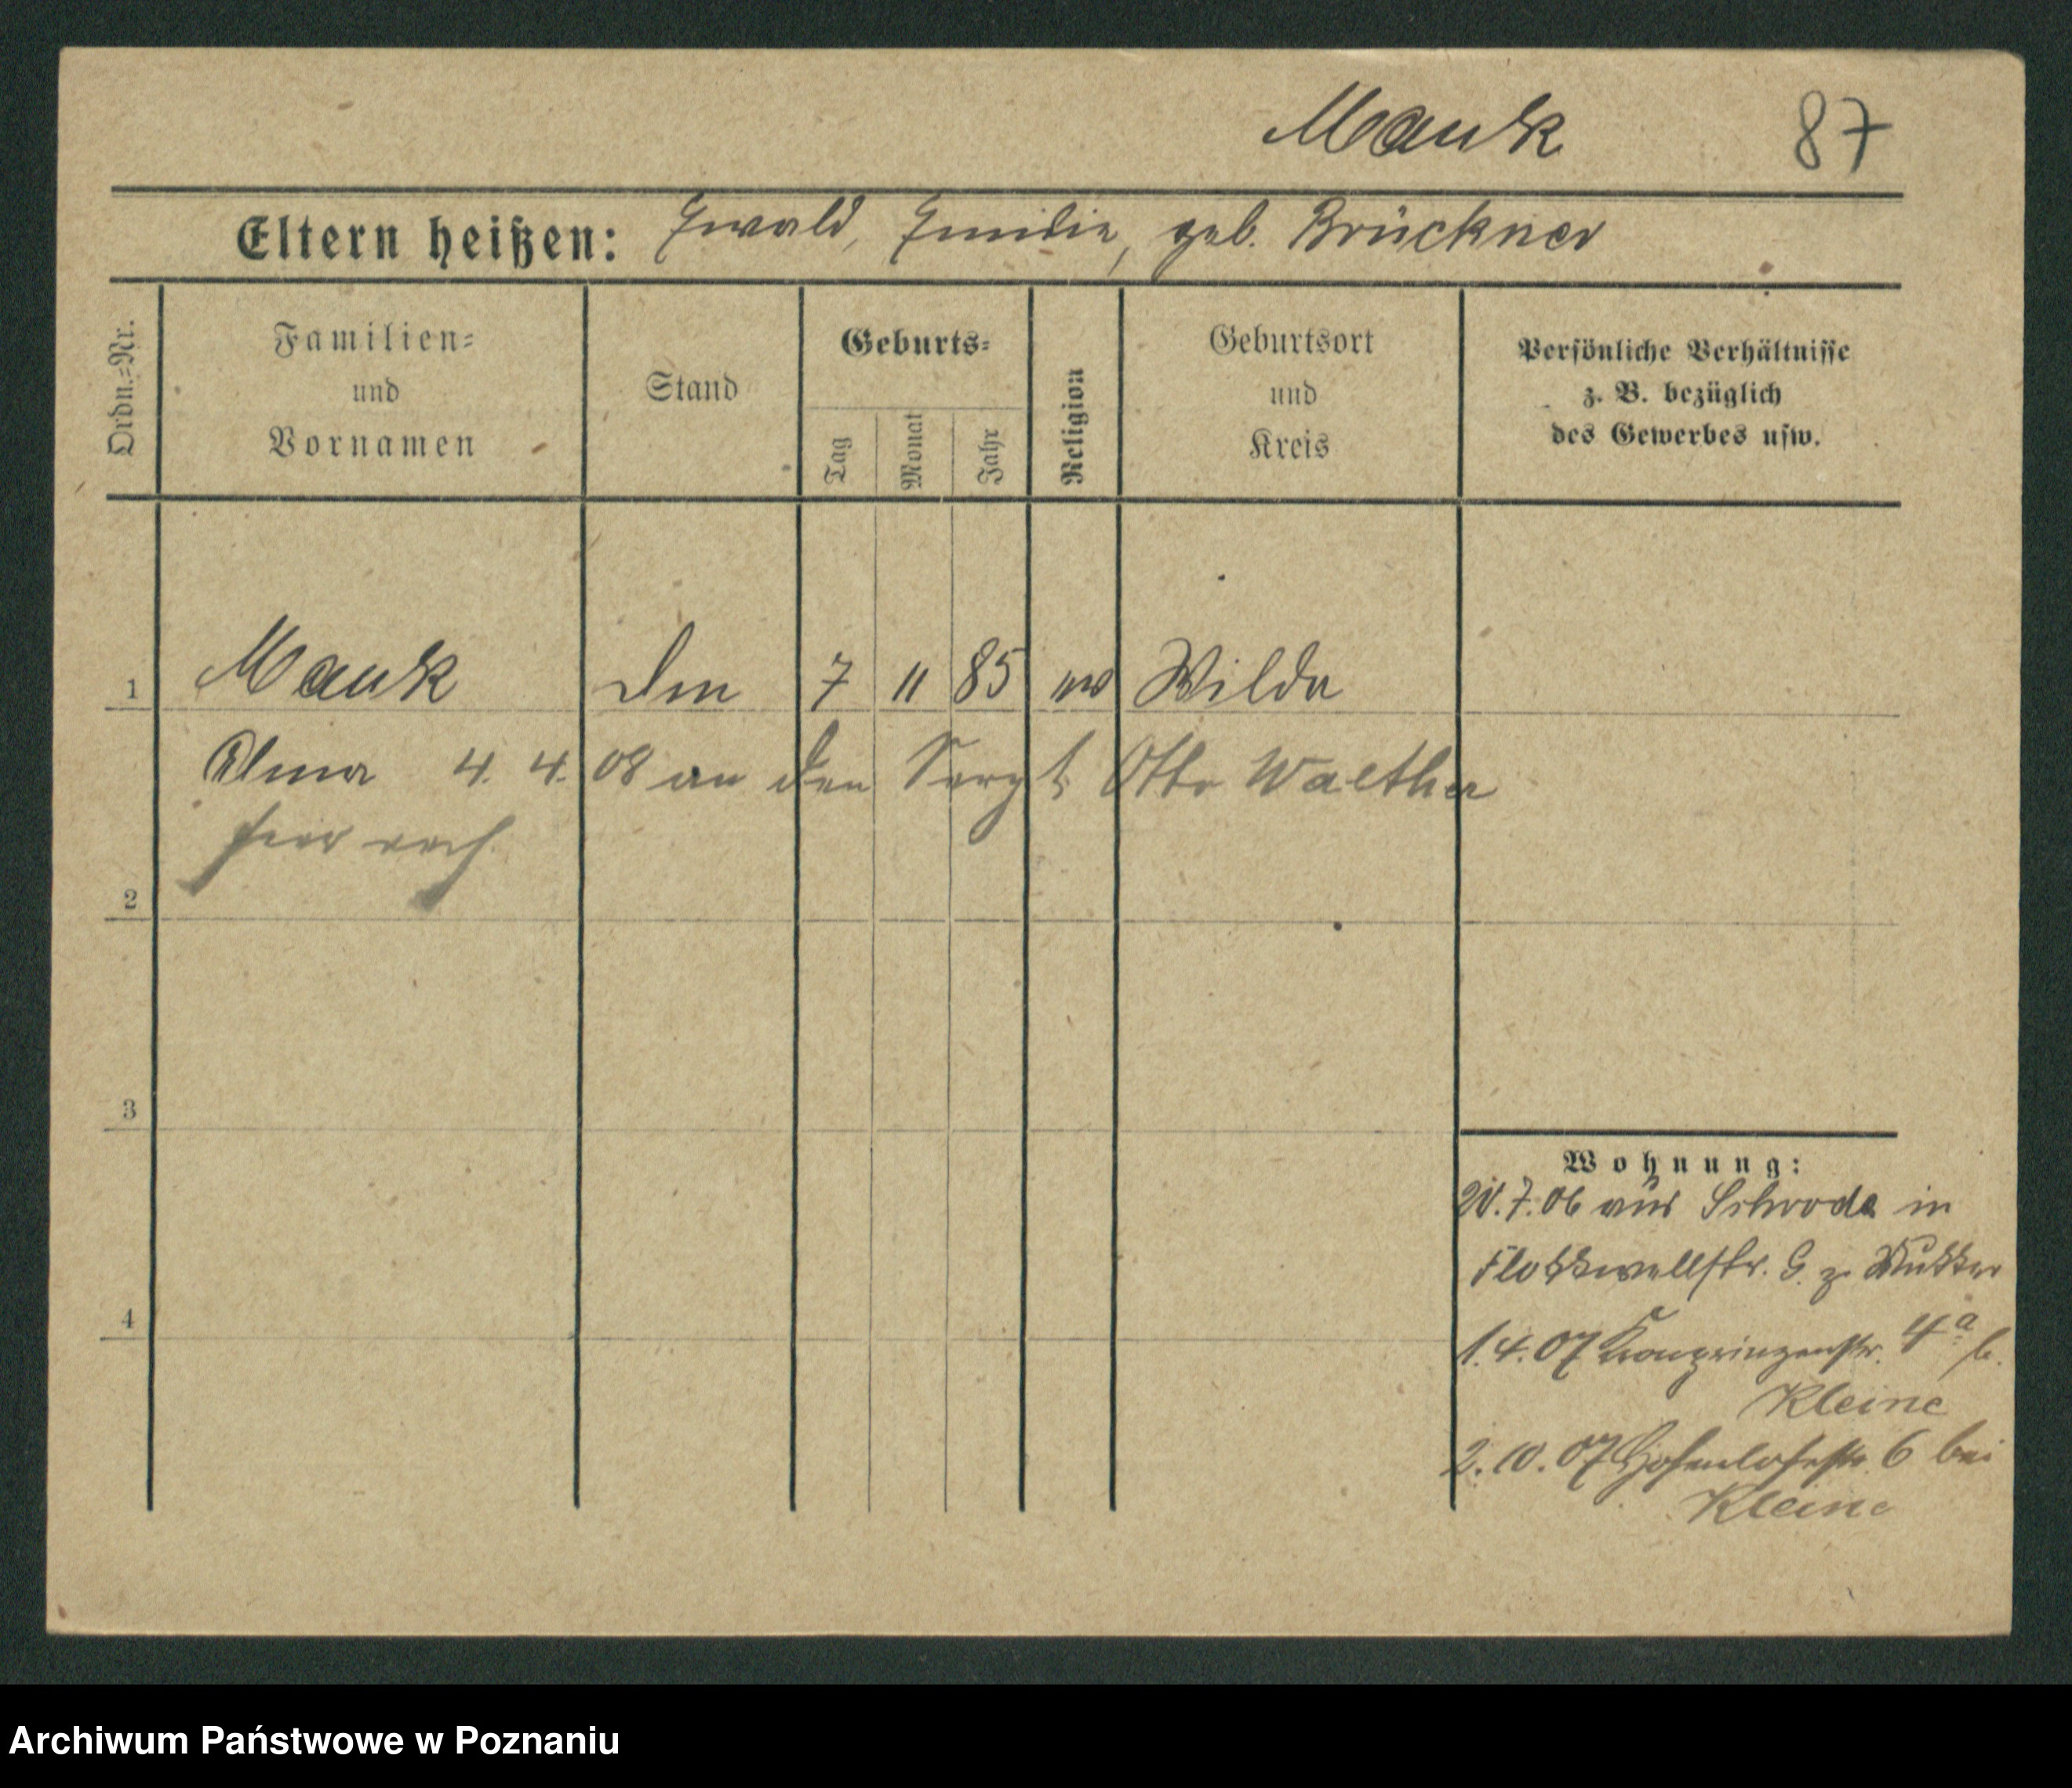 Mauk 87
Eltern heißen: Ewald, Emilie, geb. Brückner
Ordn.-Nr.
Familien-
und
Vornamen
Stand
Geburts-
Tag
Monat
Jahr
Religion
Geburtsort
und
Kreis
Persönliche Verhältnisse
z. B. bezüglich
des Gewerbes usw.
1 Mauk 7 11 85 ev Wilda
Alma 4. 4. 08 an den Sergt Otto Walther
2
3
4
Wohnung:
7. 06 aus Schroda in
Flottwellstr. z. Mutter
1. 4. 07 Kronprinzenstr. 4a b.
Kleine
2. 10. 07 Hohenlohestr. 6 bei
Kleine
Archiwum Państwowe w Poznaniu